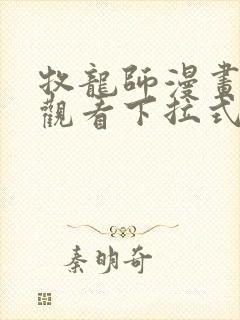 牧龍師漫畫
觀看下拉式
秦明奇